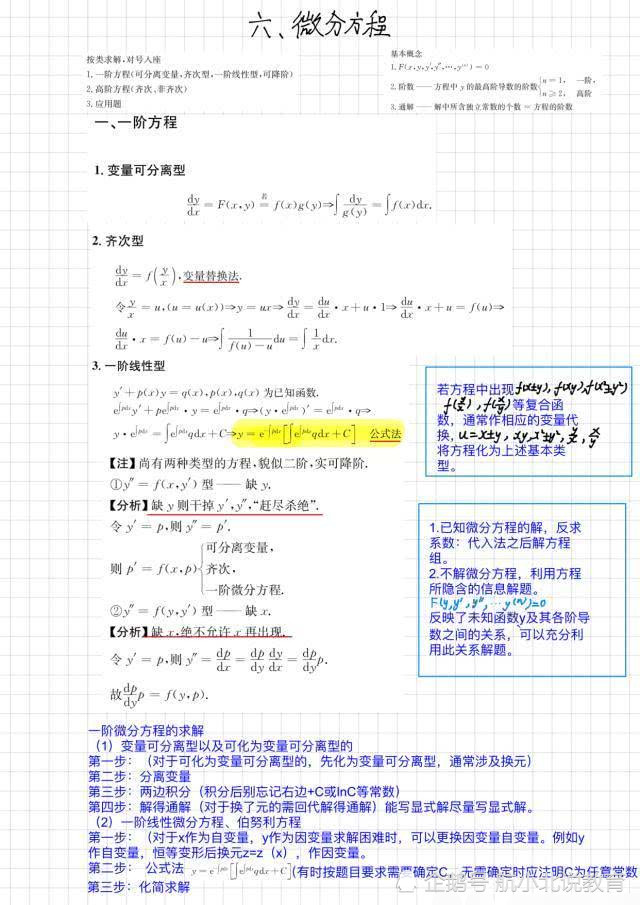 六、微分方程
按类求解,对号入座
1.一阶方程(可分离变量,齐次型,一阶线性型,可降阶)
2.高阶方程(齐次、非齐次)
3.应用题
基本概念
1.F(x,y,y′,y″,…,y⁽ⁿ⁾)=0
2.阶数 —— 方程中 y 的最高阶导数的阶数{n=1, 一阶,
n≥2, 高阶
3.通解 —— 解中所含独立常数的个数 = 方程的阶数
一、一阶方程
1. 变量可分离型
dy/dx = F(x,y) 若= f(x)g(y)⇒∫dy/g(y) = ∫f(x)dx.
2. 齐次型
dy/dx = f(y/x),变量替换法.
令y/x = u,(u = u(x))⇒y = ux⇒dy/dx = du/dx·x+u·1⇒du/dx·x+u = f(u)⇒
du/dx·x = f(u)-u⇒∫1/(f(u)-u)du = ∫1/x dx.
3. 一阶线性型
y′+p(x)y = q(x),p(x),q(x) 为已知函数.
e^∫pdx y′+pe^∫pdx·y = e^∫pdx·q⇒(y·e^∫pdx)′ = e^∫pdx·q⇒
y·e^∫pdx = ∫e^∫pdx qdx+C⇒y = e^-∫pdx[∫e^∫pdx qdx+C] 公式法
【注】尚有两种类型的方程,貌似二阶,实可降阶.
①y″ = f(x,y′) 型 —— 缺 y.
【分析】缺 y 则干掉 y′,y″,“赶尽杀绝”.
令 y′ = p,则 y″ = p′.
则 p′ = f(x,p){可分离变量,
齐次,
一阶微分方程.
②y″ = f(y,y′) 型 —— 缺 x.
【分析】缺 x,绝不允许 x 再出现.
令 y′ = p,则 y″ = dp/dx = dp/dy dy/dx = dp/dy p.
故dp/dy p = f(y,p).
若方程中出现f(x±y),f(xy),f(x²±y²)
f(y/x),f(x/y)等复合函
数,通常作相应的变量代
换,u=x±y,xy,x²±y²,y/x,x/y
将方程化为上述基本类
型。
1.已知微分方程的解,反求
系数:代入法之后解方程
组。
2.不解微分方程,利用方程
所隐含的信息解题。
F(y,y′,y″,…y⁽ⁿ⁾)=0
反映了未知函数y及其各阶导
数之间的关系,可以充分利
用此关系解题。
一阶微分方程的求解
(1)变量可分离型以及可化为变量可分离型的
第一步:(对于可化为变量可分离型的,先化为变量可分离型,通常涉及换元)
第二步:分离变量
第三步:两边积分(积分后别忘记右边+C或lnC等常数)
第四步:解得通解(对于换了元的需回代解得通解)能写显式解尽量写显式解。
(2)一阶线性微分方程、伯努利方程
第一步:(对于x作为自变量,y作为因变量求解困难时,可以更换因变量自变量。例如y
作自变量,恒等变形后换元z=z(x),作因变量。
第二步: 公式法 y = e^-∫pdx[∫e^∫pdx qdx+C](有时按题目要求需要确定C,无需确定时应注明C为任意常数
第三步:化简求解
企鹅号 航小北说教育